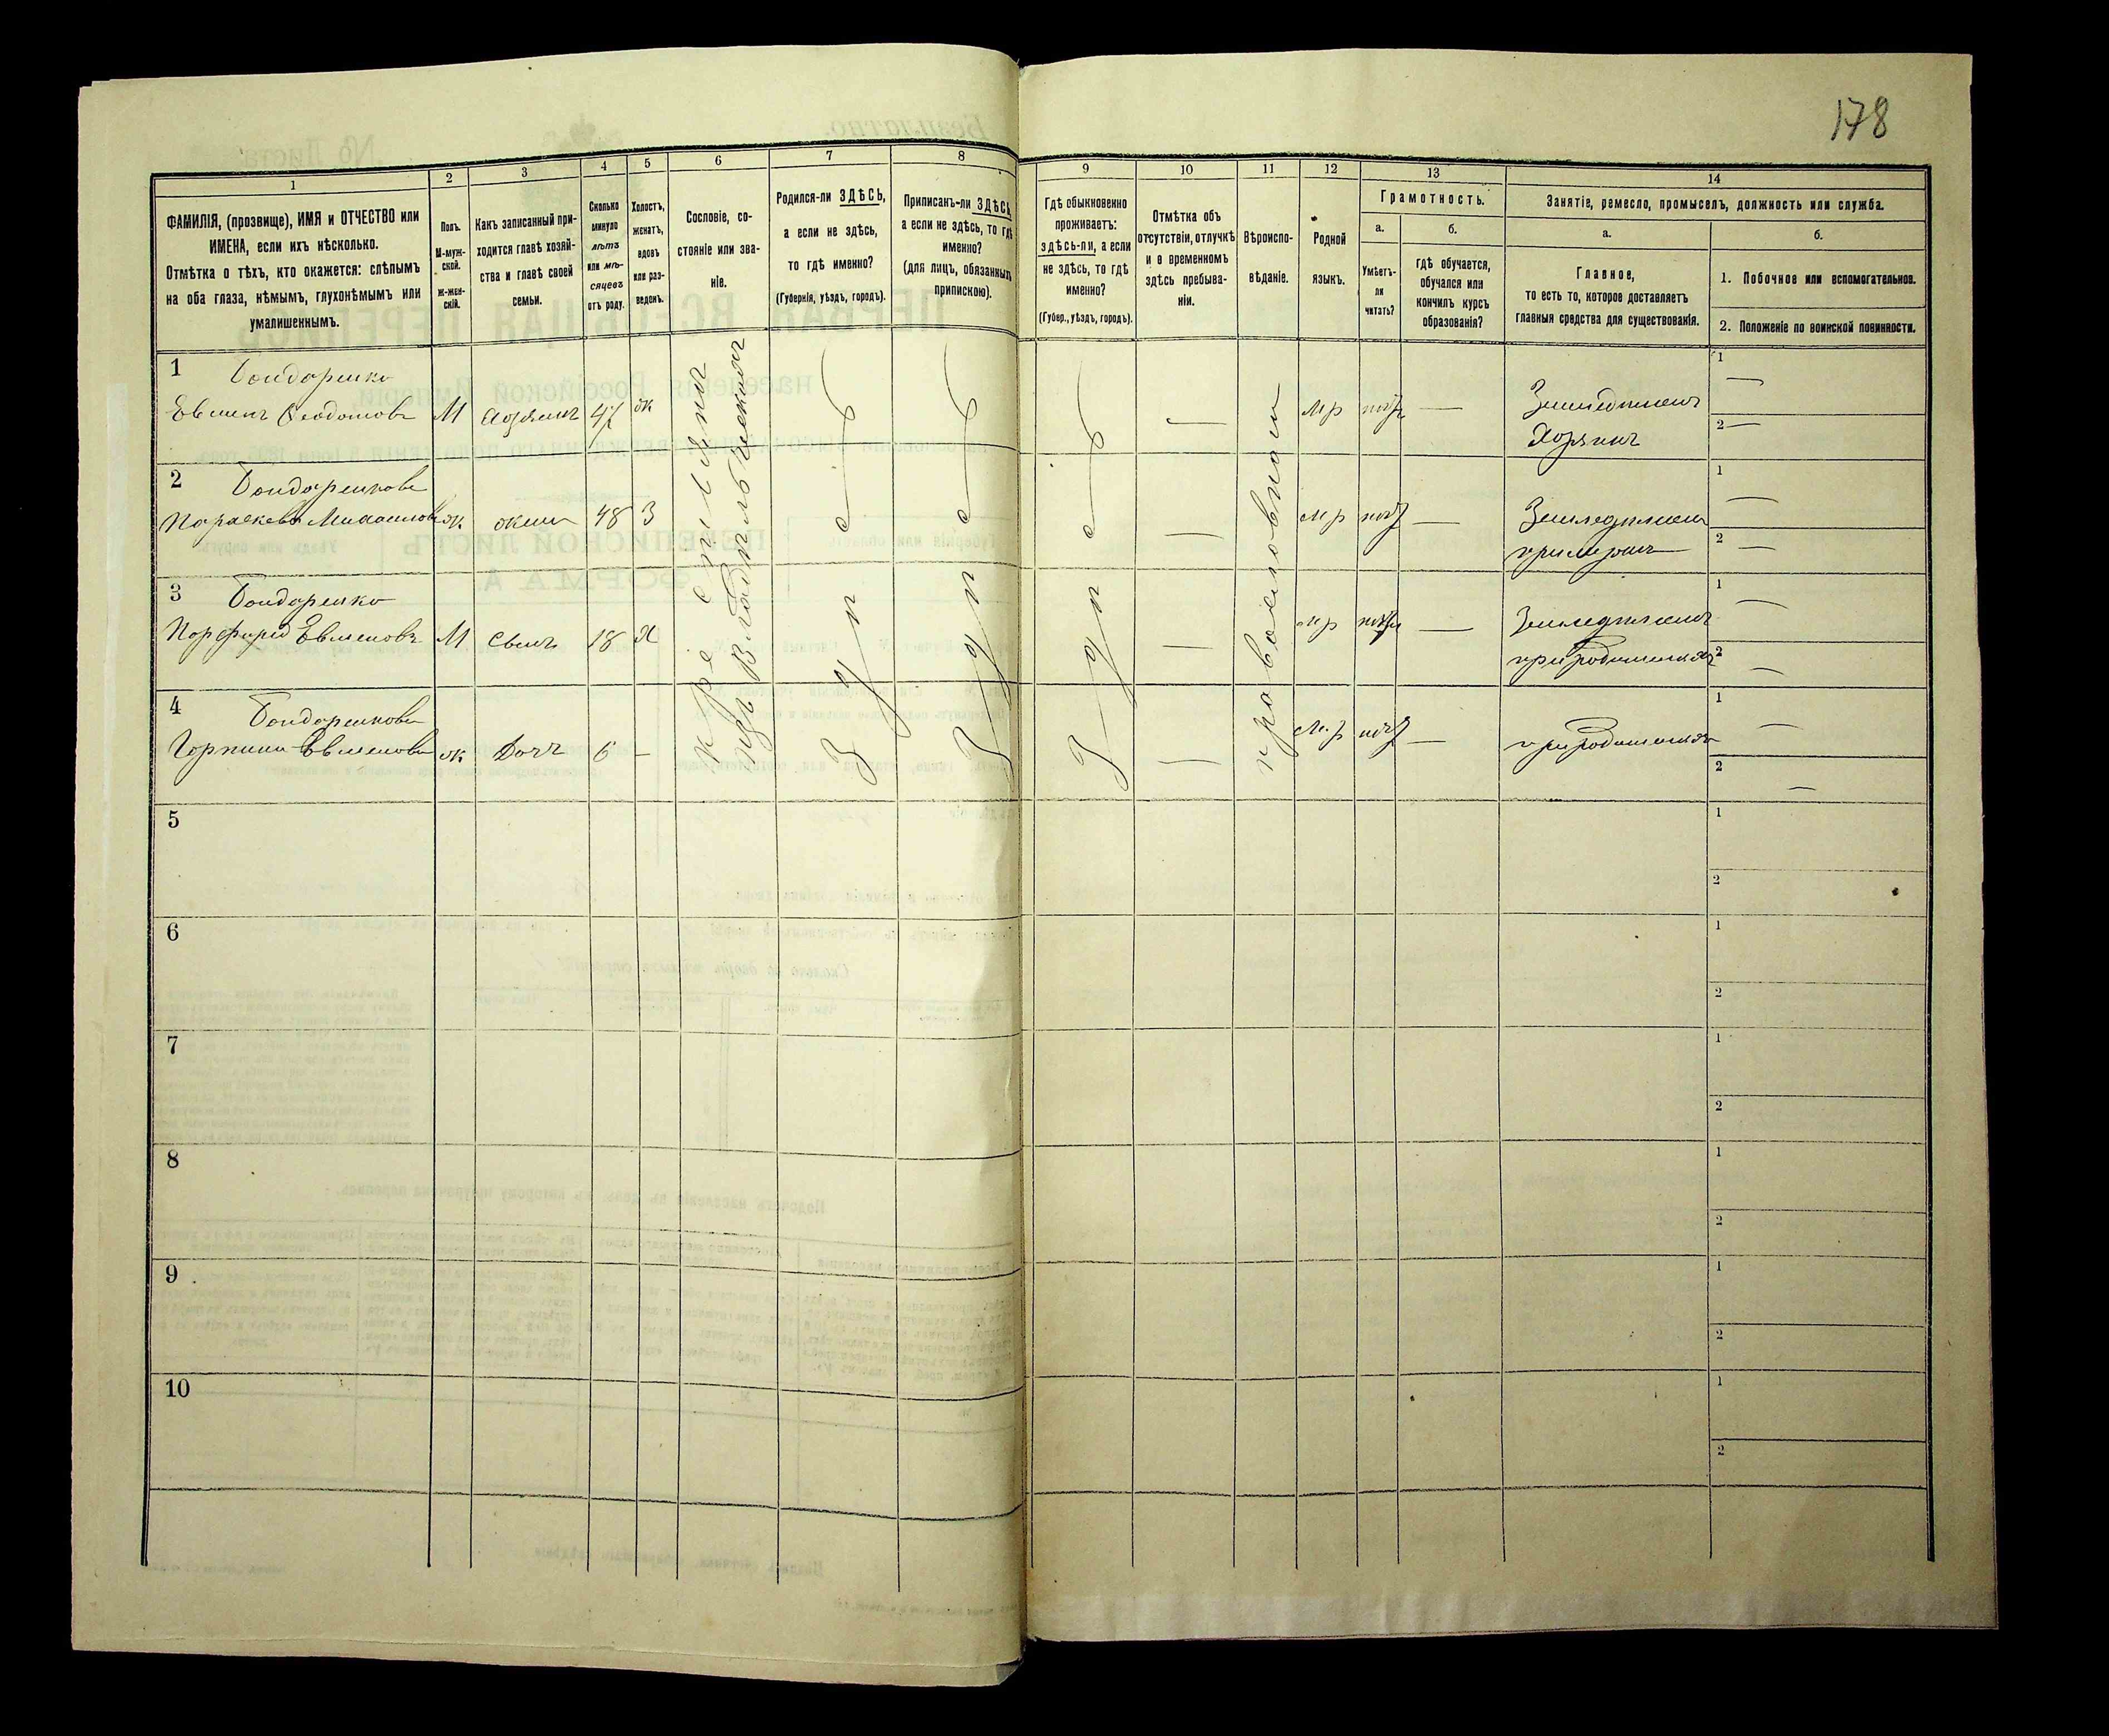 178
1
2
3
4
5
6
7
8
9
10
11
12
13
14
ФАМИЛІЯ, (прозвище), ИМЯ и ОТЧЕСТВО или
ИМЕНА, если ихъ нѣсколько.
Отмѣтка о тѣхъ, кто окажется: слѣпымъ
на оба глаза, нѣмымъ, глухонѣмымъ или
умалишеннымъ.
Полъ.
М-муж-
ской.
Ж-жен-
скій.
Какъ записанный при-
ходится главѣ хозяй-
ства и главѣ своей
семьи.
Сколько
минуло
лѣтъ
или мѣ-
сяцевъ
отъ роду.
Холостъ,
женатъ,
вдовъ
или раз-
веденъ.
Сословіе, со-
стояніе или зва-
ніе.
Родился-ли ЗДѢСЬ,
а если не здѣсь,
то гдѣ именно?
(Губернія, уѣздъ, городъ).
Приписанъ-ли ЗДѢСЬ,
а если не здѣсь, то гдѣ
именно?
(для лицъ, обязанныхъ
припискою).
Гдѣ обыкновенно
проживаетъ:
здѣсь-ли, а если
не здѣсь, то гдѣ
именно?
(Губер., уѣздъ, городъ).
Отмѣтка объ
отсутствіи, отлучкѣ
и о временномъ
здѣсь пребыва-
ніи.
Вѣроиспо-
вѣданіе.
Родной
языкъ.
Грамотность.
а.
б.
Умѣетъ-
ли
читать?
Гдѣ обучается,
обучался или
кончилъ курсъ
образованія?
Занятіе, ремесло, промыселъ, должность или служба.
а.
б.
Главное,
то есть то, которое доставляетъ
главныя средства для существованія.
1. Побочное или вспомогательное.
2. Положеніе по воинской повинности.
1 Бондаренко
Евменъ Ѳеодотовъ М Хозяинъ 47 ж — мр нѣтъ — Земледѣлецъ
Хозяинъ
1 —
2 —
2 Бондаренкова
Параскева Михайлова ж жена 48 З — мр нѣтъ — Земледѣлец
при мужѣ
1 —
2 —
3 Бондаренко
Порфирій Евменовъ М Сынъ 18 Х — мр нѣтъ — Земледѣлецъ
при родителяхъ
1 —
2 —
4 Бондаренкова
Горпина Евменова ж Дочь 6 — — мр нѣтъ — при родителяхъ
1 —
2 —
крестьяне
изъ владѣльческихъ
Здѣсь
Здѣсь
Здѣсь
православное
5
1
2
6
1
2
7
1
2
8
1
2
9
1
2
10
1
2